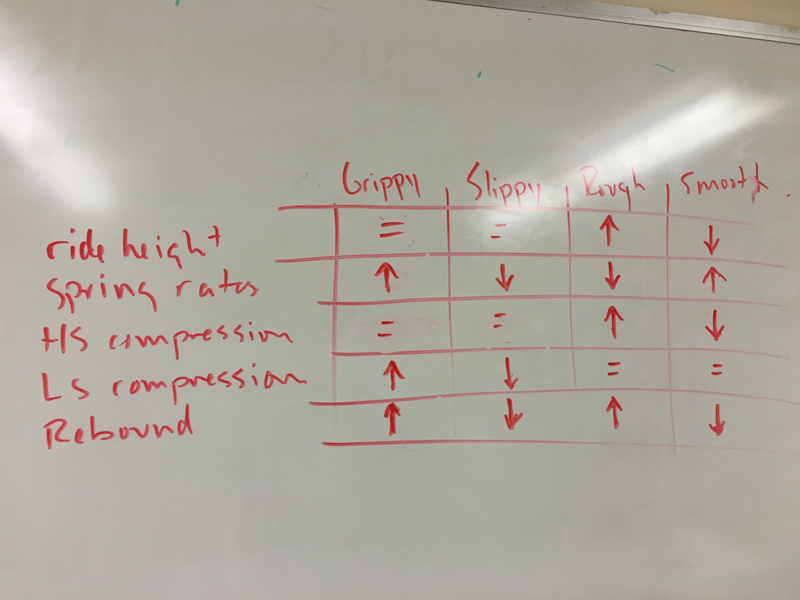 Grippy Slippy Rough Smooth
ride height = = ↑ ↓
Spring rates ↑ ↓ ↓ ↑
HS compression = = ↑ ↓
LS compression ↑ ↓ = =
Rebound ↑ ↓ ↑ ↓